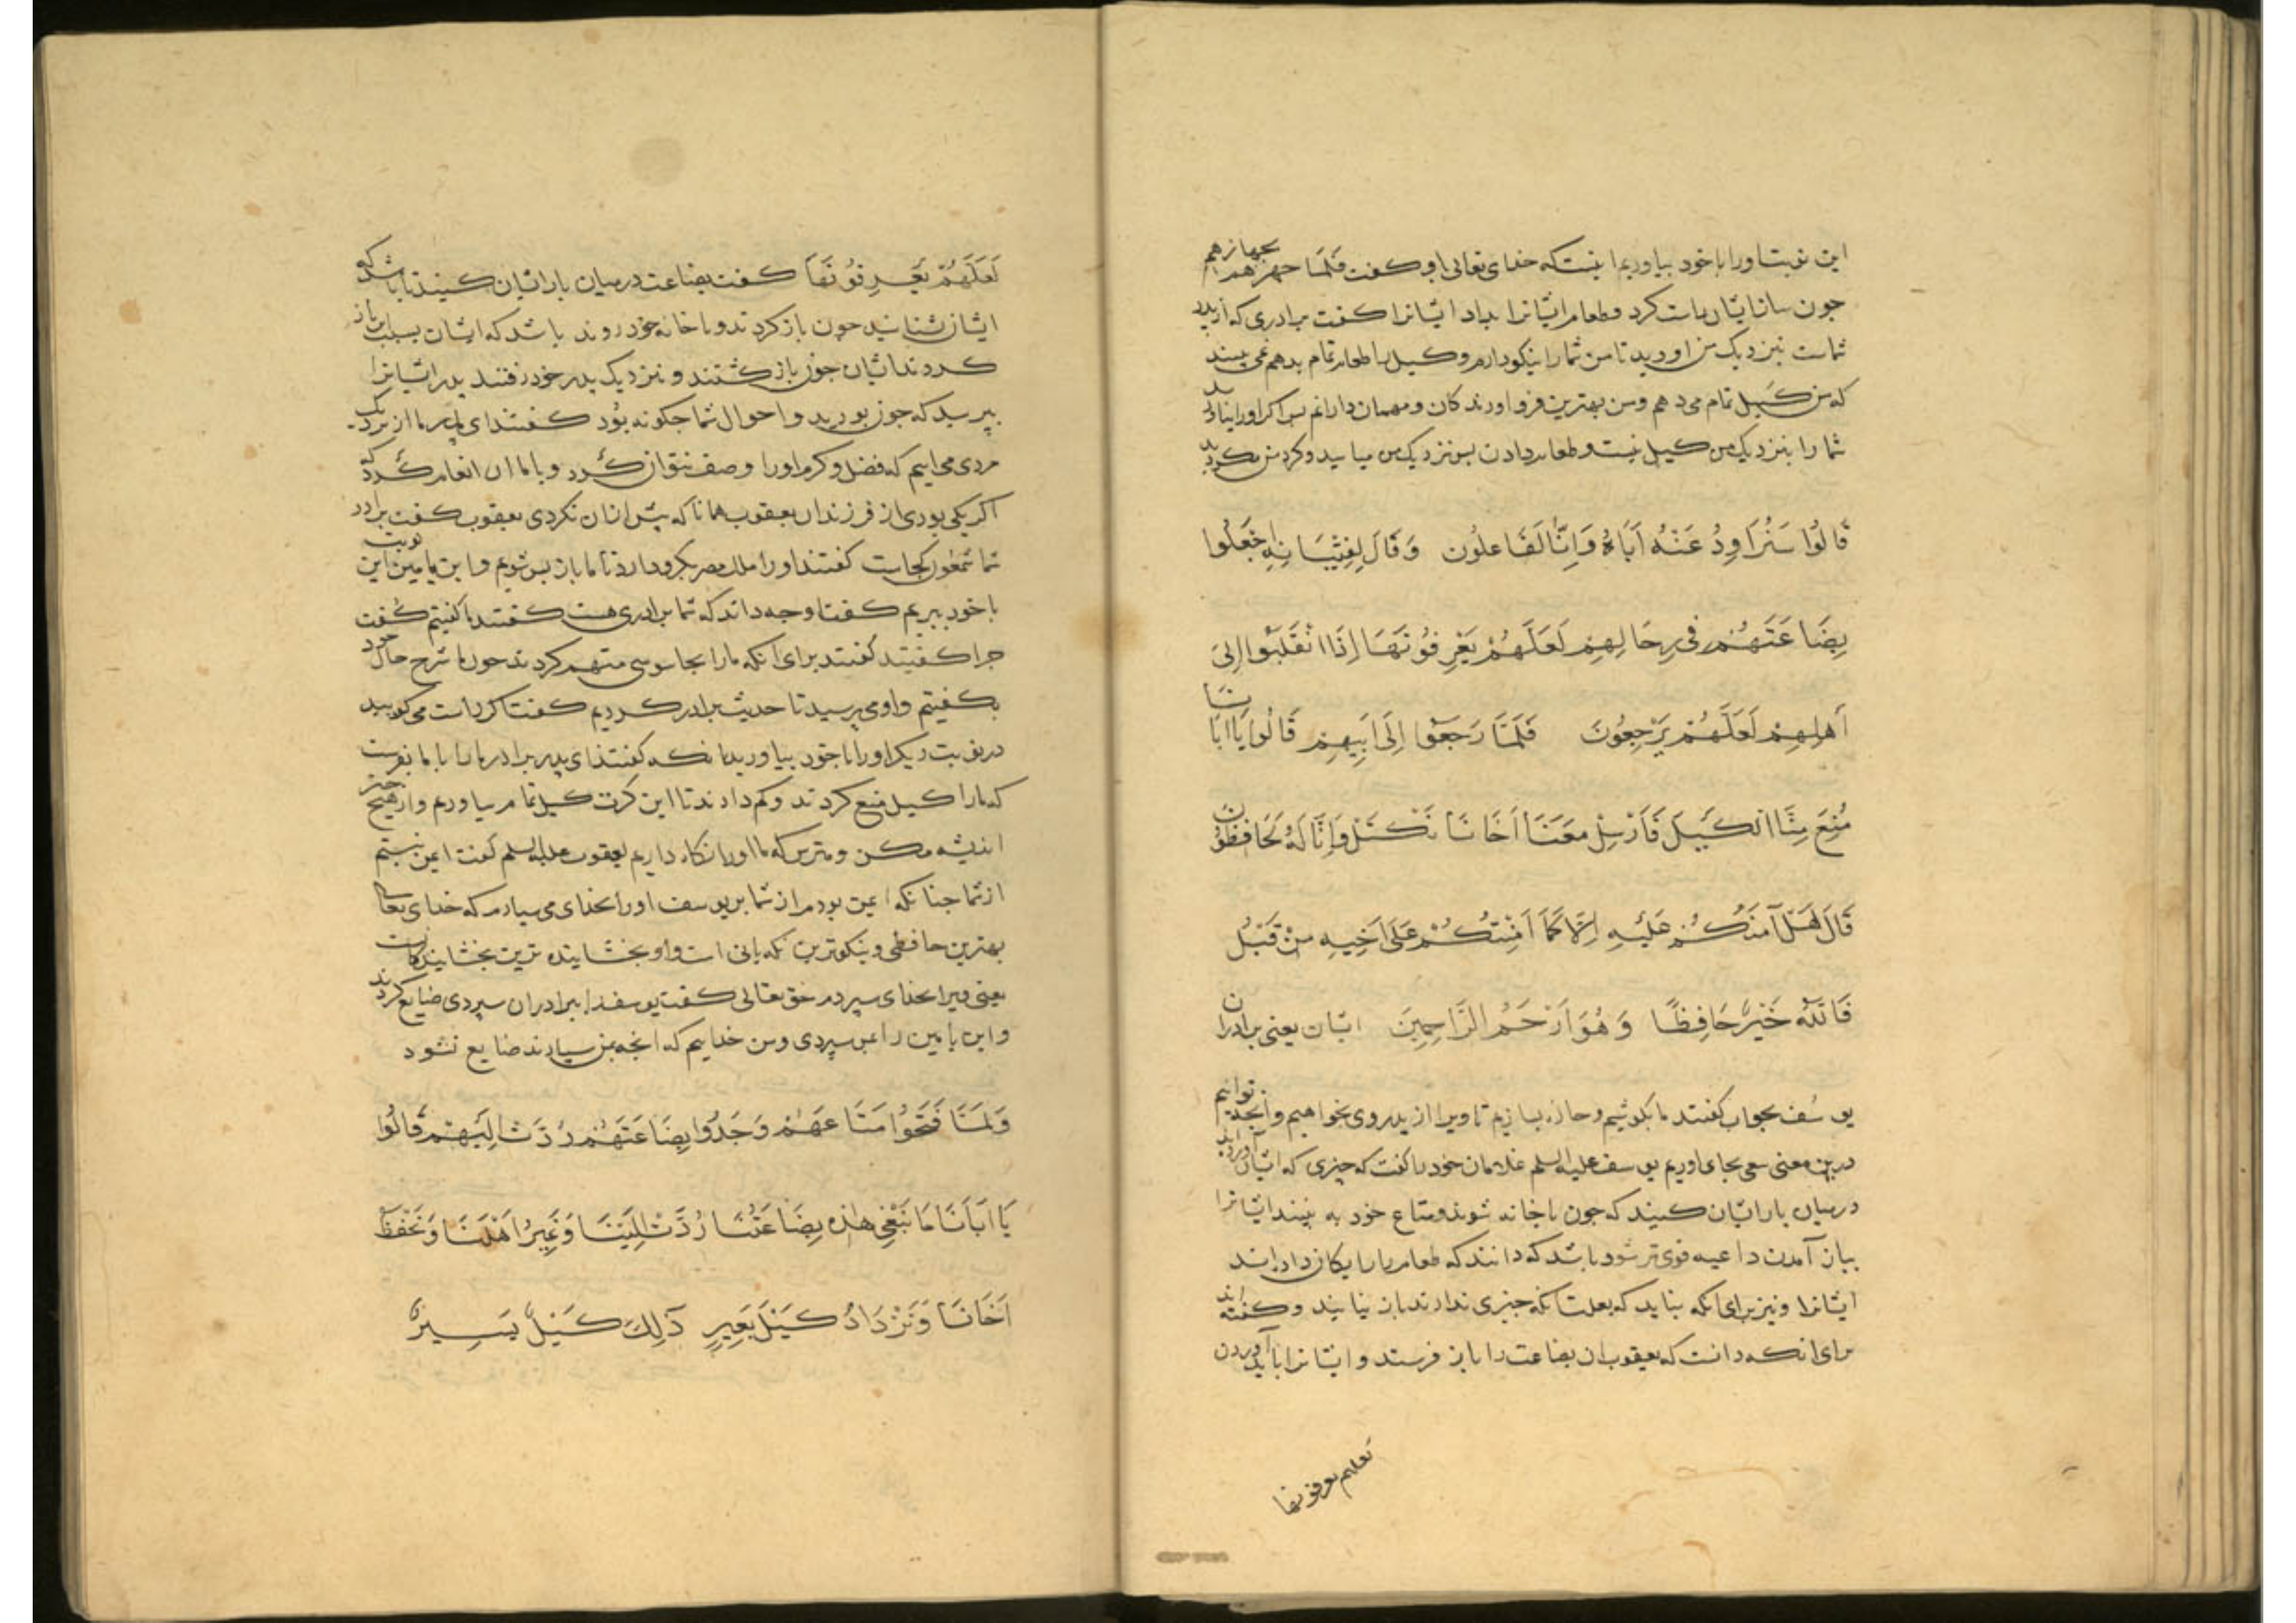 این نوبت اورا با خود بیاوریم اینست که خدای تعالی او کفت فلما جهزهم بجهازهم
جون ساز ایشان راست کرد و طعام ایشانرا بداد ایشانرا کفت برادری که از پدر
شماست بنزدیک من اورید تا من شما را نیکو دارم و کیل با طعام تمام بدهم نمی بینید
که من کیل تمام می دهم و من بهترین فرو اورندکان و مهمان دارانم بس اکر اورا نیارید
شما را بنزدیک من کیل نیست و طعام دادن بس نزدیک من میایید و کرد من مکردید
قَالُوا سَنُرَاوِدُ عَنْهُ اَبَاهُ وَاِنَّا لَفَاعِلُون وَقَالَ لِفِتْيَانِهِ اجْعَلُوا
بِضَاعَتَهُمْ فِي رِحَالِهِمْ لَعَلَّهُمْ يَعْرِفُونَهَا اِذَا انْقَلَبُوا اِلىَ
اَهْلِهِمْ لَعَلَّهُمْ يَرْجِعُونَ فَلَمَّا رَجَعُوا اِلَى اَبِيهِمْ قَالُوا يَا اَبَانَا
مُنِعَ مِنَّا الْكَيْلَ فَاَرْسِلْ مَعَنَا اَخَانَا نَكْتَلْ وَاِنَّا لَهُ لَحَافِظُونَ
قَالَ هَلْ آمَنُكُمْ عَلَيْهِ اِلَّا كَمَا اَمِنْتُكُمْ عَلَى اَخِيهِ مِنْ قَبْلُ
فَاللّٰهُ خَيْرٌ حَافِظًا وَهُوَ اَرْحَمُ الرَّاحِمِينَ ایشان یعنی برادران
یوسف بجواب کفتند ما بکوشیم و بسازیم تا ویرا از پدر وی بخواهیم و آنجه توانیم
درین معنی سعی بجای اوریم یوسف علیه السلم غلامان خود را کفت که جیزی که ایشان آورده اند
در میان بار ایشان کنید که جون با خانه شوند و متاع خود به بینند ایشانرا
بباز آمدن داعیه قوی تر شود باشد که دانند که طعام ما را رایکان داده اند
ایشانرا و نیز برای انکه نباید که بعلت انکه جیزی ندارند باز نیایند و کفته اند
برای انکه دانست که یعقوب ان بضاعت را باز فرستد و ایشانرا باید آوردن
لعلهم یعرفونها
لَعَلَّهُمْ يَعْرِفُونَهَا کفت بضاعت در میان بار ایشان کنید تا باشد که
ایشان بشناسند جون باز کردند و با خانه خود روند باشد که ایشان بسبب این باز
کردند ایشان جون باز کشتند و بنزدیک پدر خود رفتند پدر ایشانرا
بپرسید که جون بودید و احوال شما جکونه بود کفتند ای پدر ما از نزدیک
مردی می اییم که فضل و کرم اورا وصف نتوان کرد و با ما ان انعام کرد که
اکر یکی بودی از فرزندان یعقوب همانا که بیش از ان نکردی یعقوب کفت برادر
شما شمعون کجاست کفتند اورا ملک مصر بکرو دارد تا ما باز بس شویم و ابن یامین این نوبت
با خود ببریم کفت او جه داند که شما برادری هست کفتند ما کفتیم کفت
جرا کفتید کفتند برای آنکه ما را بجاسوسی متهم کردند جون ما شرح حال خود
بکفتیم و او می پرسید تا حدیث برادر کردیم کفت اکر راست می کویید
در نوبت دیکر اورا با خود بیاورید انکه کفتند ای پدر برادر ما را با ما بفرست
که ما را کیل منع کردند و کم دادند تا این کرت کیل تمام بیاوریم و از هیج جیز
اندیشه مکن و مترس که ما اورا نکاه داریم یعقوب علیه السلم کفت ایمن نیستم
از شما جنانکه ایمن بودم از شما بر یوسف اورا بخدای می سپارم که خدای تعالی
بهترین حافظی و نیکوترین نکه بانی است و او بخشاینده ترین بخشایندکانست
یعنی ویرا بخدای سپردم حق تعالی کفت یوسف را ببرادران سپردی ضایع کردند
و ابن یامین را بمن سپردی و من خدایم که انجه بمن سپارند ضایع نشود
وَلَمَّا فَتَحُوا مَتَاعَهُمْ وَجَدُوا بِضَاعَتَهُمْ رُدَّتْ اِلَيْهِمْ قَالُوا
يَا اَبَانَا مَا نَبْغِي هٰذِهِ بِضَاعَتُنَا رُدَّتْ اِلَيْنَا وَنَمِيرُ اَهْلَنَا وَنَحْفَظُ
اَخَانَا وَنَزْدَادُ كَيْلَ بَعِيرٍ ذٰلِكَ كَيْلٌ يَسِيرٌ